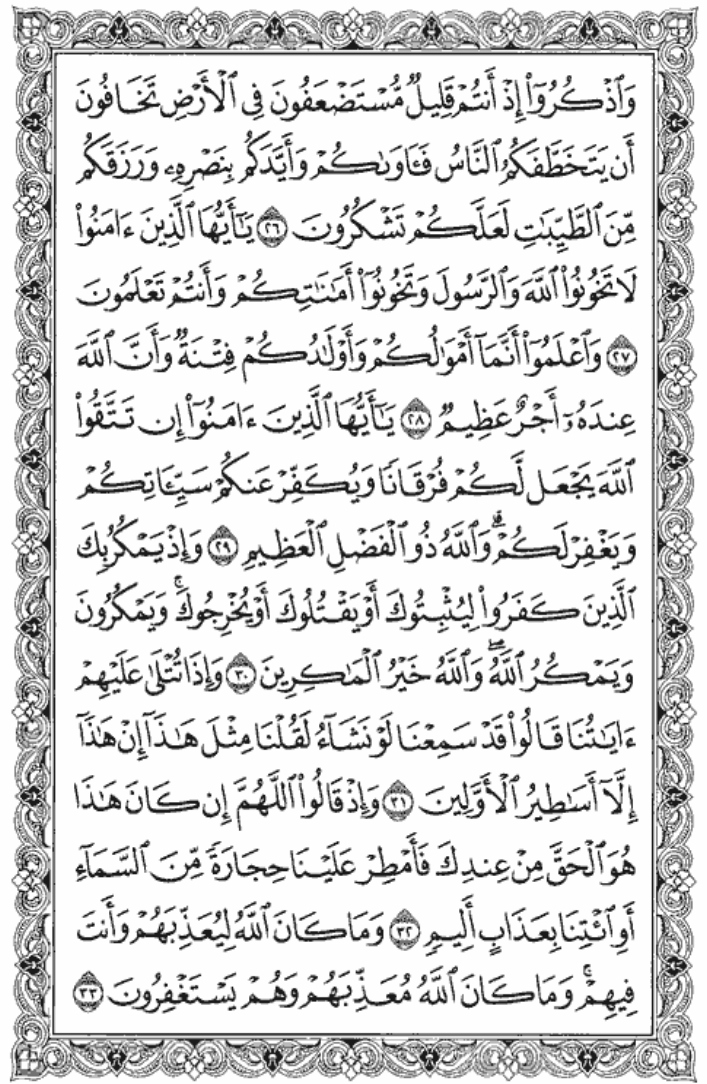 وَٱذْكُرُوٓا۟ إِذْ أَنتُمْ قَلِيلٌ مُّسْتَضْعَفُونَ فِى ٱلْأَرْضِ تَخَافُونَ
أَن يَتَخَطَّفَكُمُ ٱلنَّاسُ فَـَٔاوَىٰكُمْ وَأَيَّدَكُم بِنَصْرِهِۦ وَرَزَقَكُم
مِّنَ ٱلطَّيِّبَـٰتِ لَعَلَّكُمْ تَشْكُرُونَ ٢٦ يَـٰٓأَيُّهَا ٱلَّذِينَ ءَامَنُوا۟
لَا تَخُونُوا۟ ٱللَّهَ وَٱلرَّسُولَ وَتَخُونُوٓا۟ أَمَـٰنَـٰتِكُمْ وَأَنتُمْ تَعْلَمُونَ
٢٧ وَٱعْلَمُوٓا۟ أَنَّمَآ أَمْوَٰلُكُمْ وَأَوْلَـٰدُكُمْ فِتْنَةٌ وَأَنَّ ٱللَّهَ
عِندَهُۥٓ أَجْرٌ عَظِيمٌ ٢٨ يَـٰٓأَيُّهَا ٱلَّذِينَ ءَامَنُوٓا۟ إِن تَتَّقُوا۟
ٱللَّهَ يَجْعَل لَّكُمْ فُرْقَانًا وَيُكَفِّرْ عَنكُمْ سَيِّـَٔاتِكُمْ
وَيَغْفِرْ لَكُمْ ۗ وَٱللَّهُ ذُو ٱلْفَضْلِ ٱلْعَظِيمِ ٢٩ وَإِذْ يَمْكُرُ بِكَ
ٱلَّذِينَ كَفَرُوا۟ لِيُثْبِتُوكَ أَوْ يَقْتُلُوكَ أَوْ يُخْرِجُوكَ ۚ وَيَمْكُرُونَ
وَيَمْكُرُ ٱللَّهُ ۖ وَٱللَّهُ خَيْرُ ٱلْمَـٰكِرِينَ ٣٠ وَإِذَا تُتْلَىٰ عَلَيْهِمْ
ءَايَـٰتُنَا قَالُوا۟ قَدْ سَمِعْنَا لَوْ نَشَآءُ لَقُلْنَا مِثْلَ هَـٰذَآ إِنْ هَـٰذَآ
إِلَّآ أَسَـٰطِيرُ ٱلْأَوَّلِينَ ٣١ وَإِذْ قَالُوا۟ ٱللَّهُمَّ إِن كَانَ هَـٰذَا
هُوَ ٱلْحَقَّ مِنْ عِندِكَ فَأَمْطِرْ عَلَيْنَا حِجَارَةً مِّنَ ٱلسَّمَآءِ
أَوِ ٱئْتِنَا بِعَذَابٍ أَلِيمٍ ٣٢ وَمَا كَانَ ٱللَّهُ لِيُعَذِّبَهُمْ وَأَنتَ
فِيهِمْ ۚ وَمَا كَانَ ٱللَّهُ مُعَذِّبَهُمْ وَهُمْ يَسْتَغْفِرُونَ ٣٣